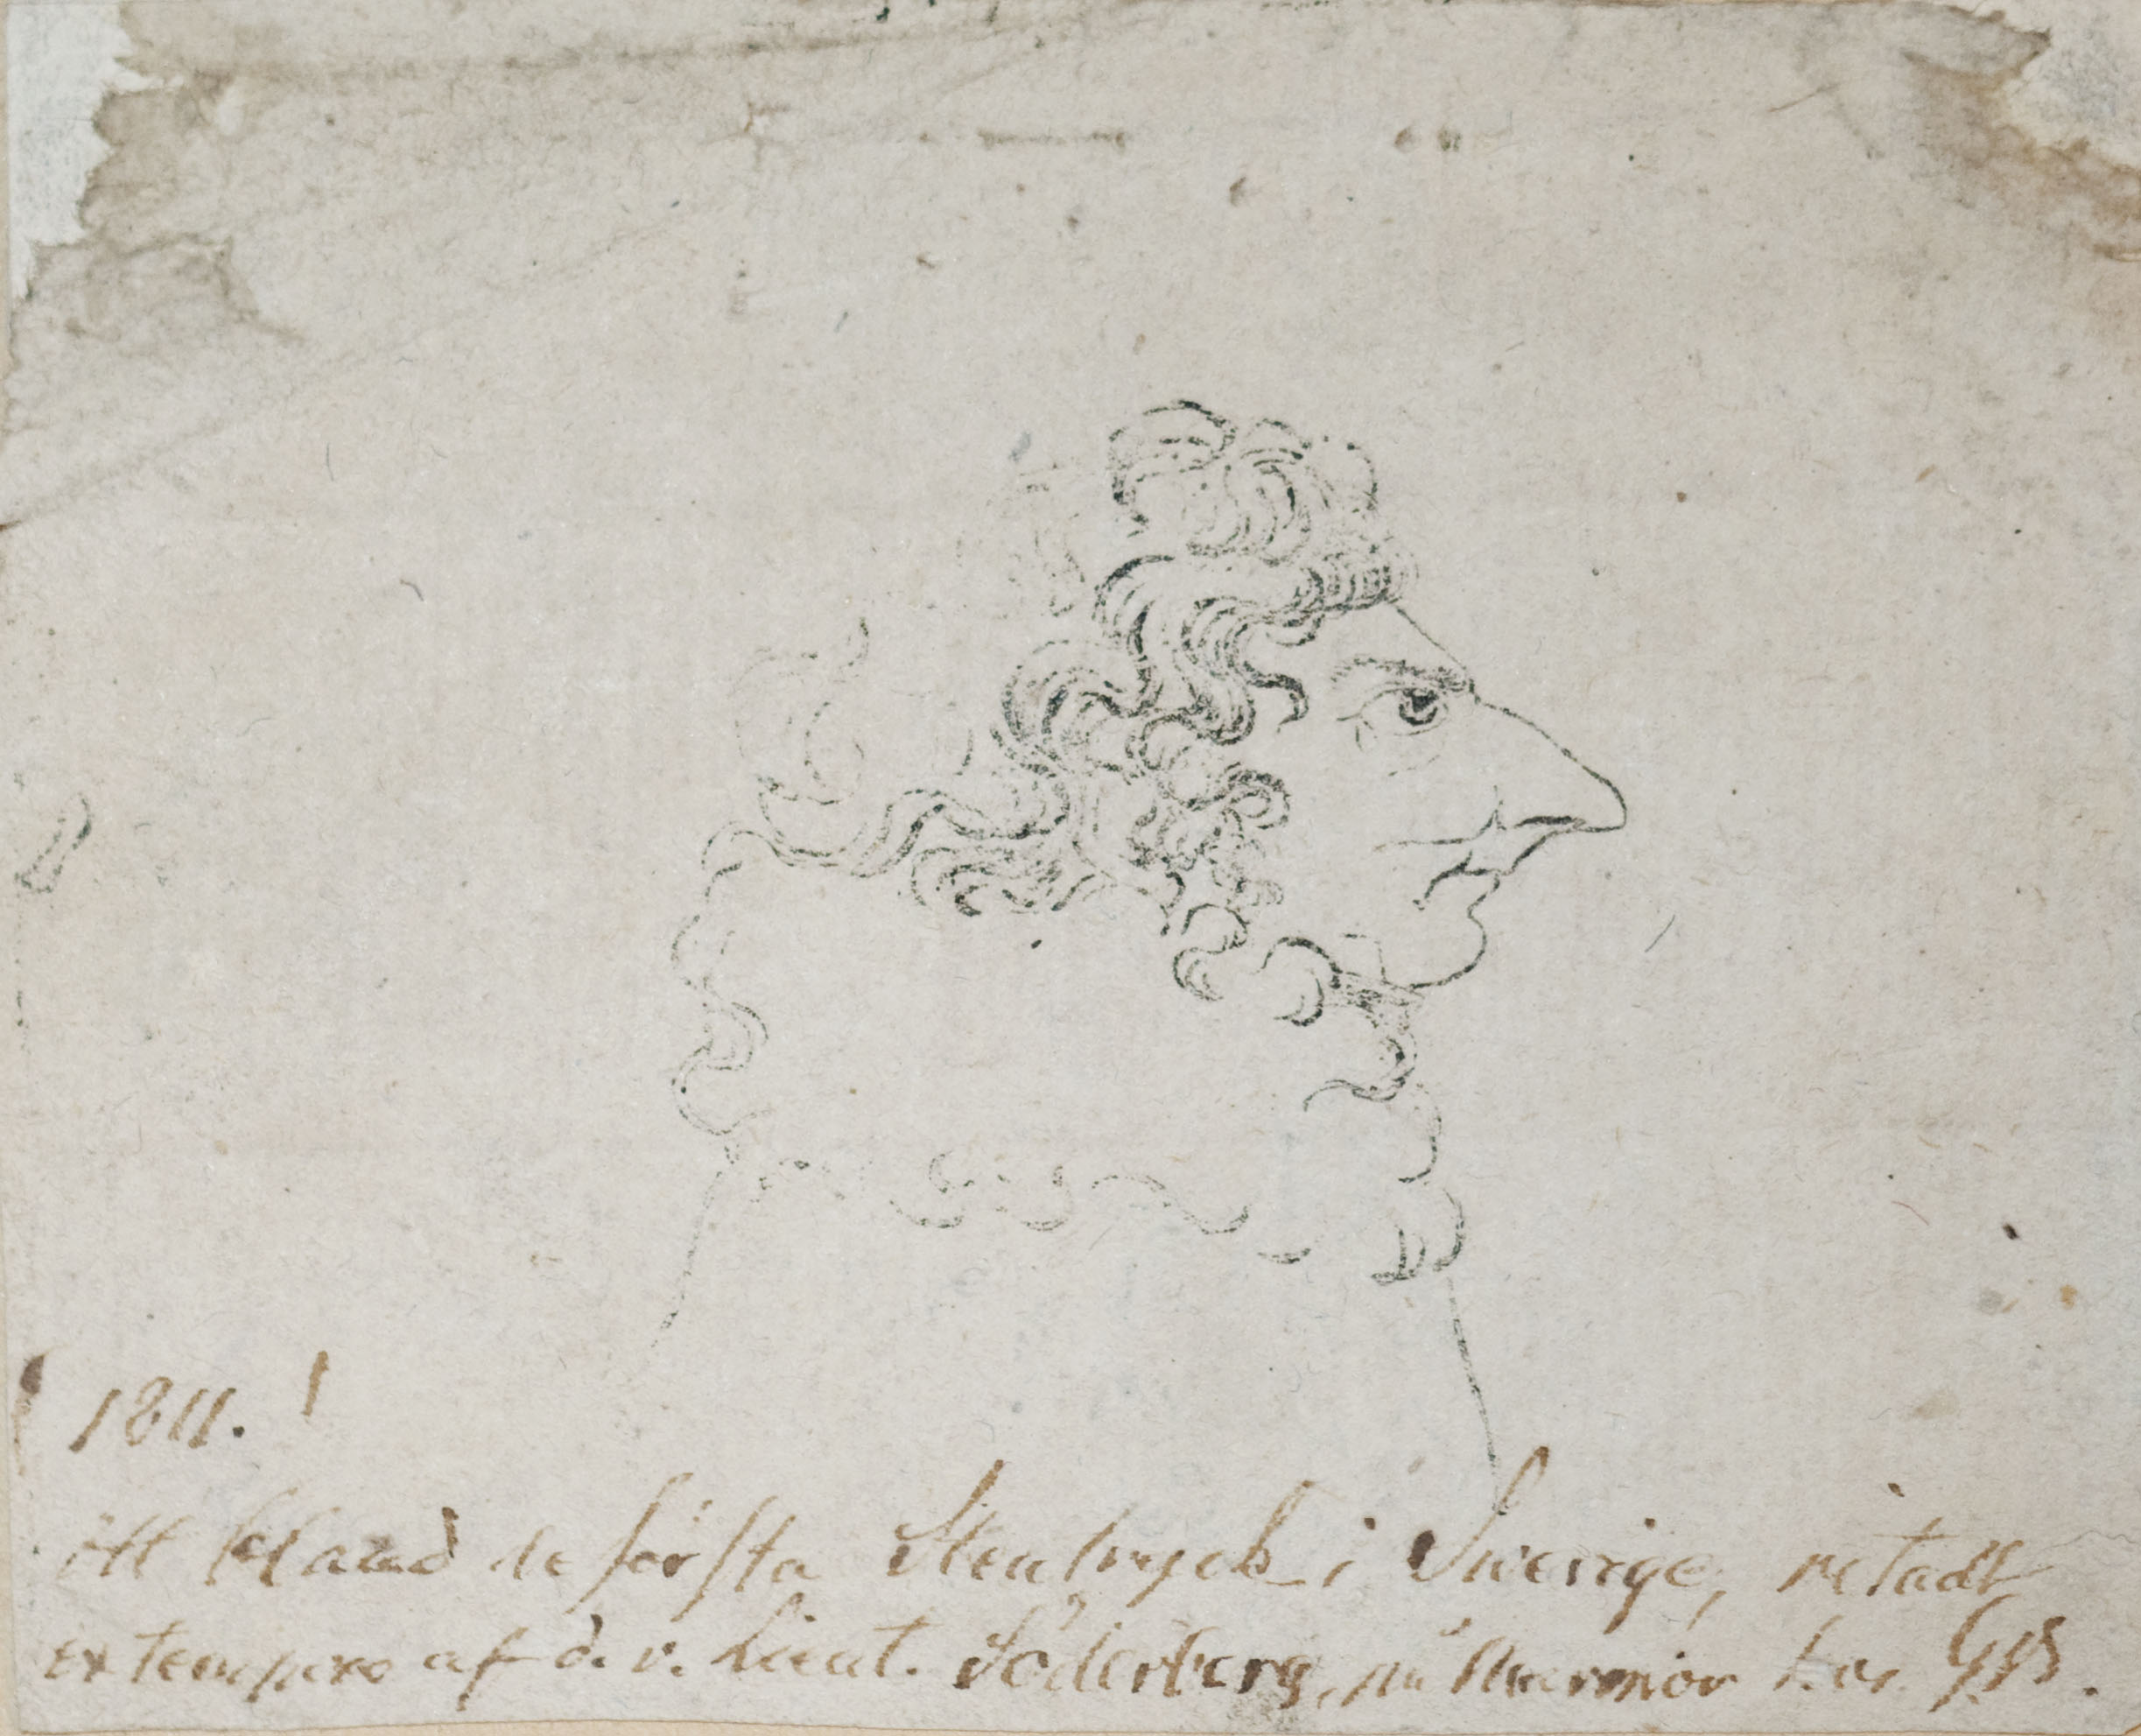 1811.
ett bland de första Stentryck i Swerige, ritadt
extempore af d. v. Lieut. Söderberg, nu